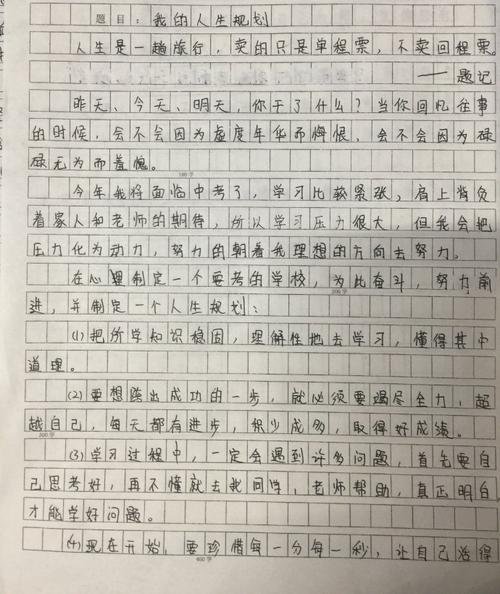 题目：我的人生规划
人生是一趟旅行，卖的只是单程票，不卖回程票。
——题记
昨天、今天、明天，你干了什么？当你回忆往事
的时候，会不会因为虚度年华而悔恨，会不会因为碌
碌无为而羞愧。
100字
今年我将面临中考了，学习比较紧张，肩上背负
着家人和老师的期待，所以学习压力很大，但我会把
压力化为动力，努力的朝着我理想的方向去努力。
在心里制定一个要考的学校，为此奋斗，努力前
200字
进，并制定一个人生规划：
(1)把所学知识稳固，理解性地去学习，懂得其中
道理。
(2)要想跨出成功的一步，就必须要竭尽全力，超
越自己，每天都有进步，积少成多，取得好成绩。
300字
(3)学习过程中，一定会遇到许多问题，首先要自
己思考好，再不懂就去找同学，老师帮助，真正明白
才能学好问题。
(4)现在开始，要珍惜每一分每一秒，让自己活得
400字